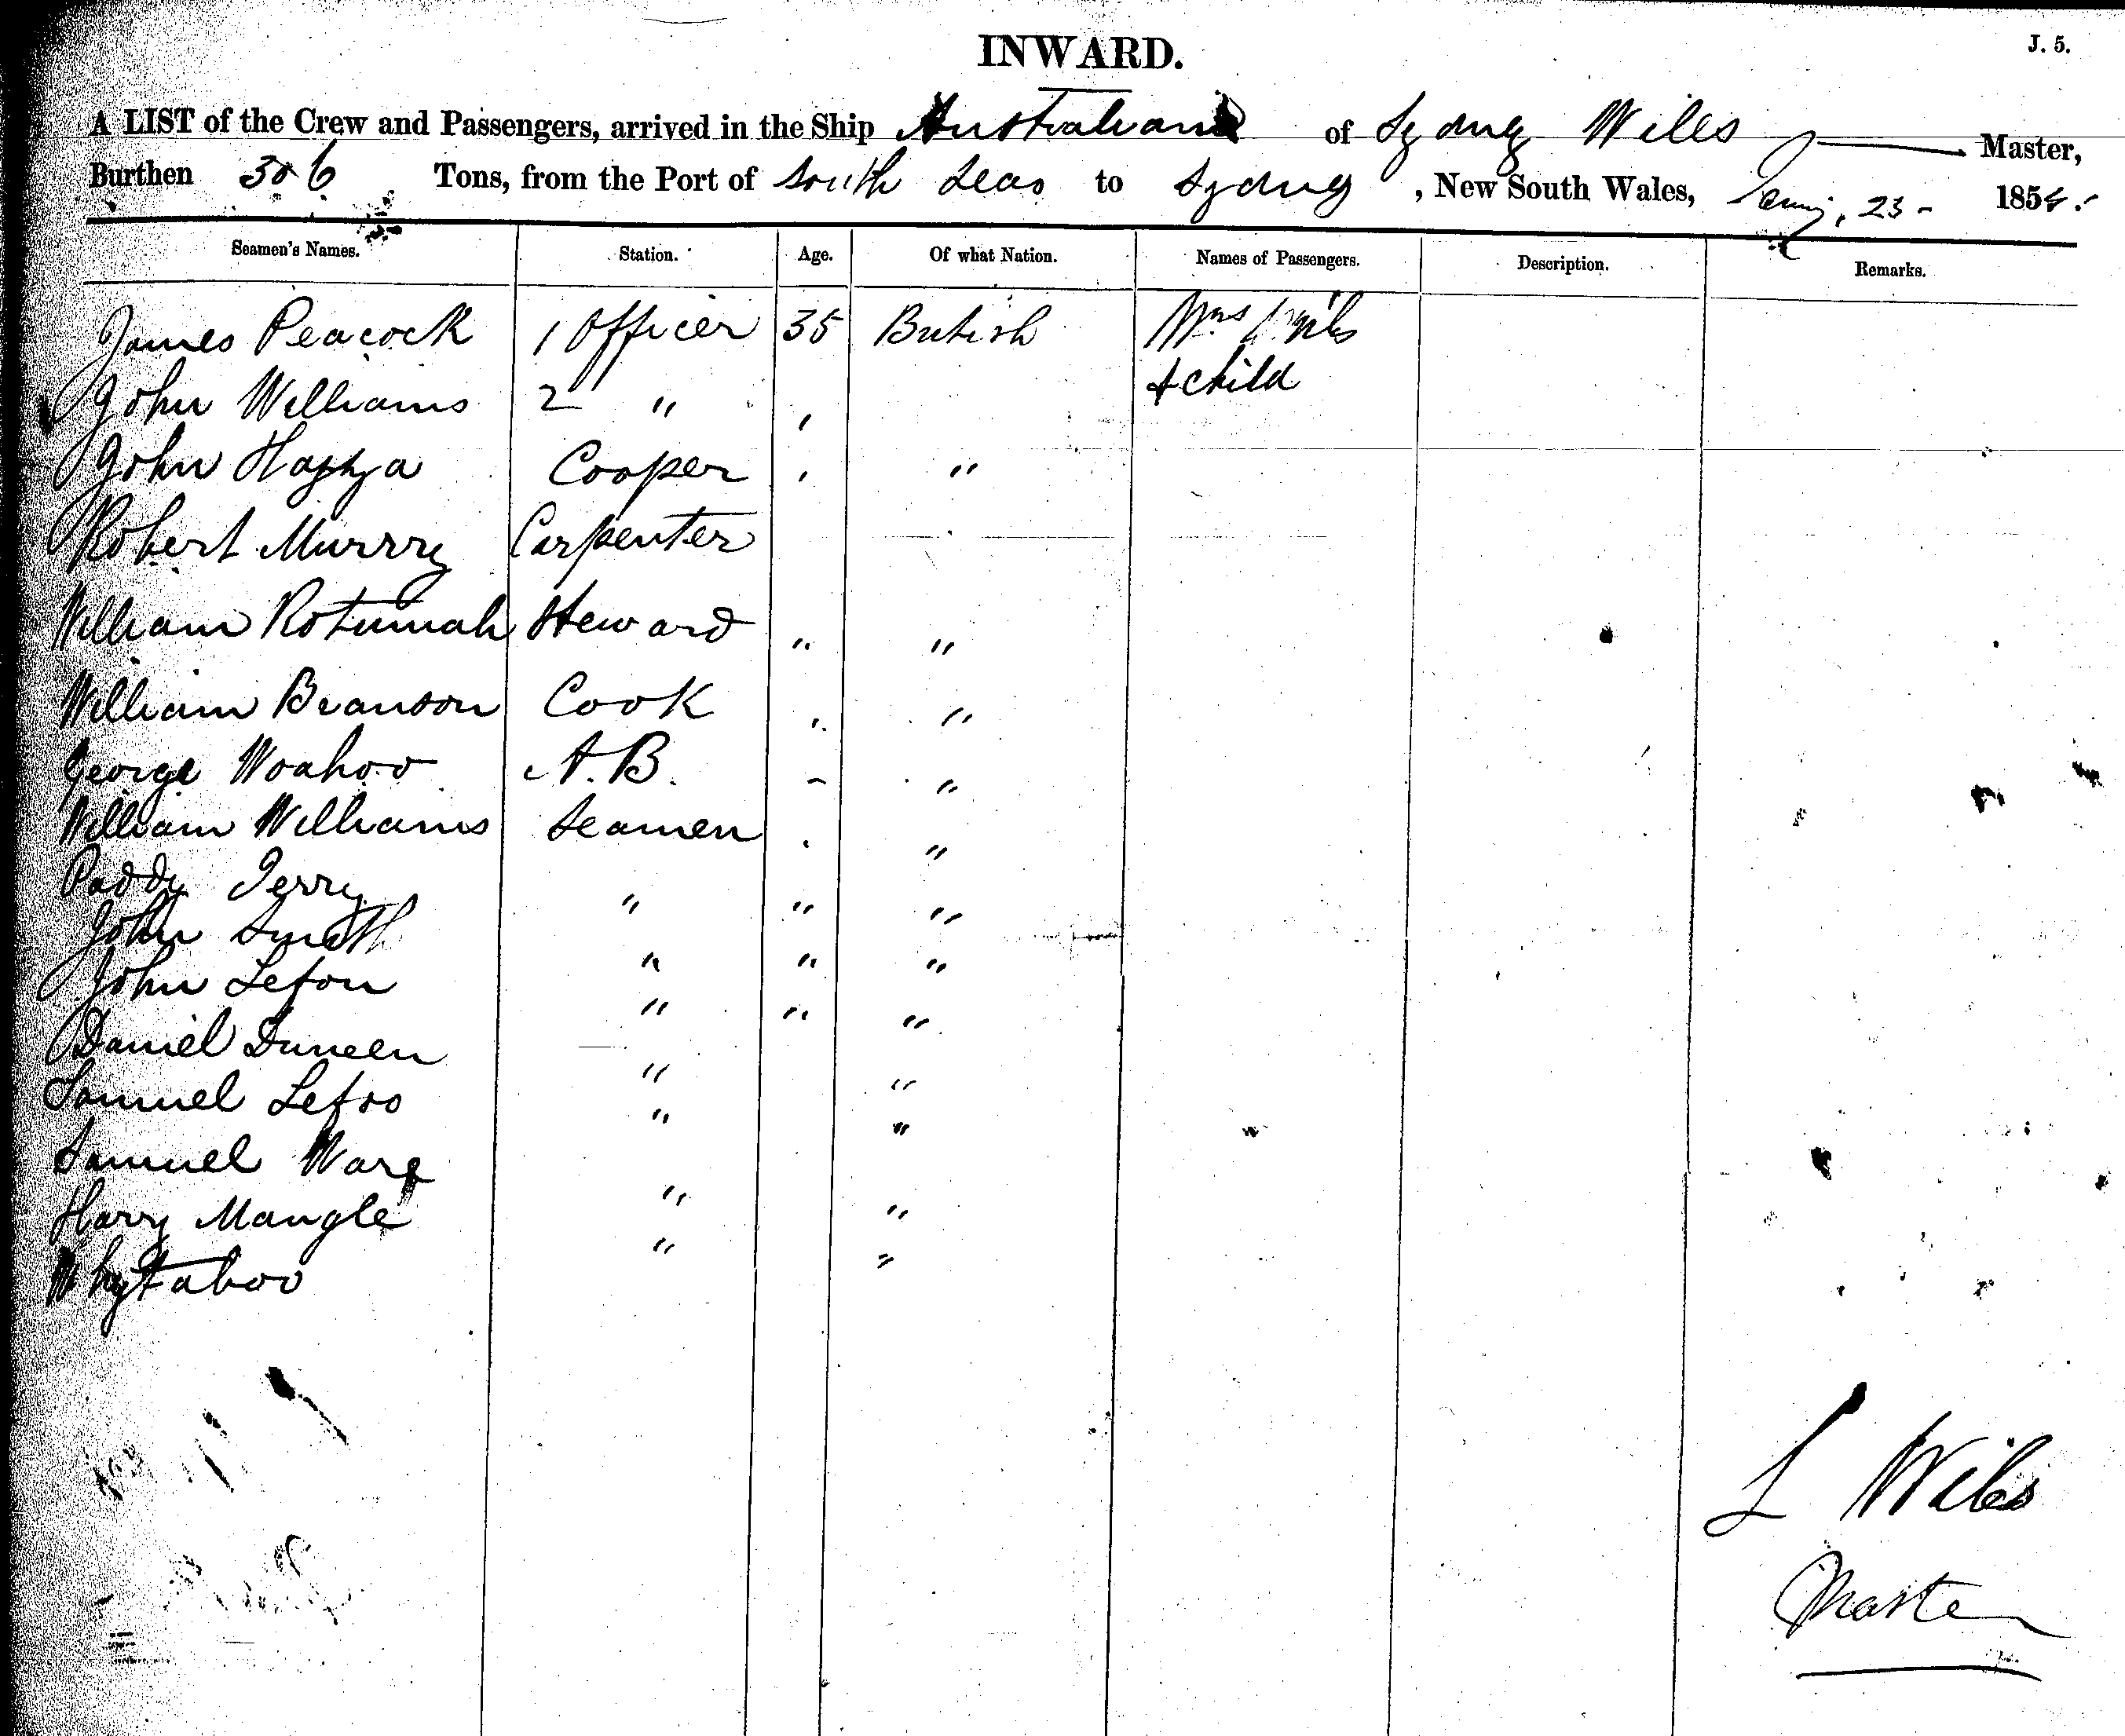 INWARD.
J. 5.
A LIST of the Crew and Passengers, arrived in the Ship Australian of Sydney Wiles Master,
Burthen 306 Tons, from the Port of South Seas to Sydney, New South Wales, 23 - 185
Seamen's Names. Station. Age. Of what Nation. Names of Passengers. Description. Remarks.
James Peacock 1 Officer 35 British Mrs Wiles
John Williams 2 " & child
John Cooper "
Robert Murrry Carpenter
William Rotumah Steward " "
William Branson Cook "
George Woahoo A.B. "
William Williams Seamen "
Paddy Jerry " " "
John Smith " " "
John Lefou " " "
Daniel Duneen " "
Samuel Lefoo " "
Samuel Ware " "
Harry Mangle " "
Whytaboo
L Wiles
Master